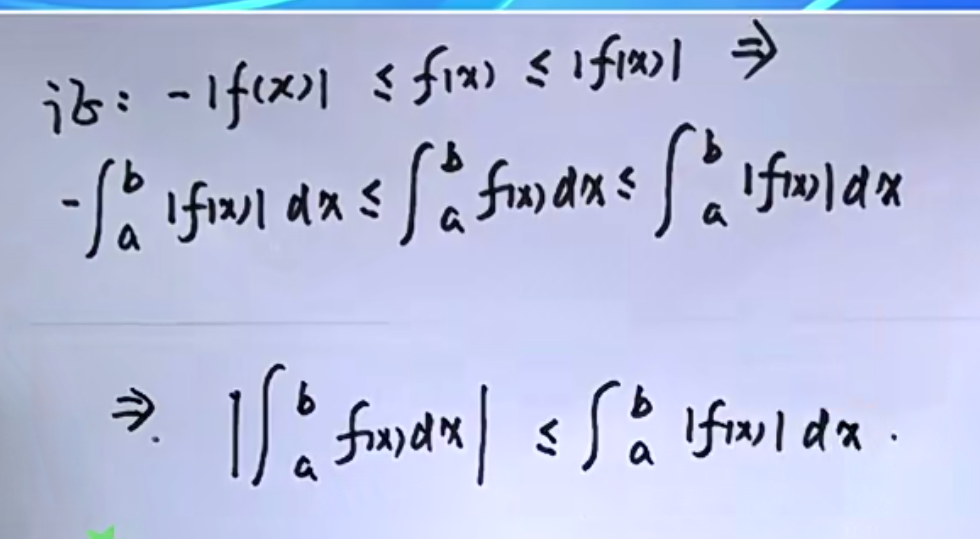 证: -|f(x)| ≤ f(x) ≤ |f(x)| ⇒
-∫_a^b |f(x)| dx ≤ ∫_a^b f(x) dx ≤ ∫_a^b |f(x)| dx
⇒. |∫_a^b f(x) dx| ≤ ∫_a^b |f(x)| dx.